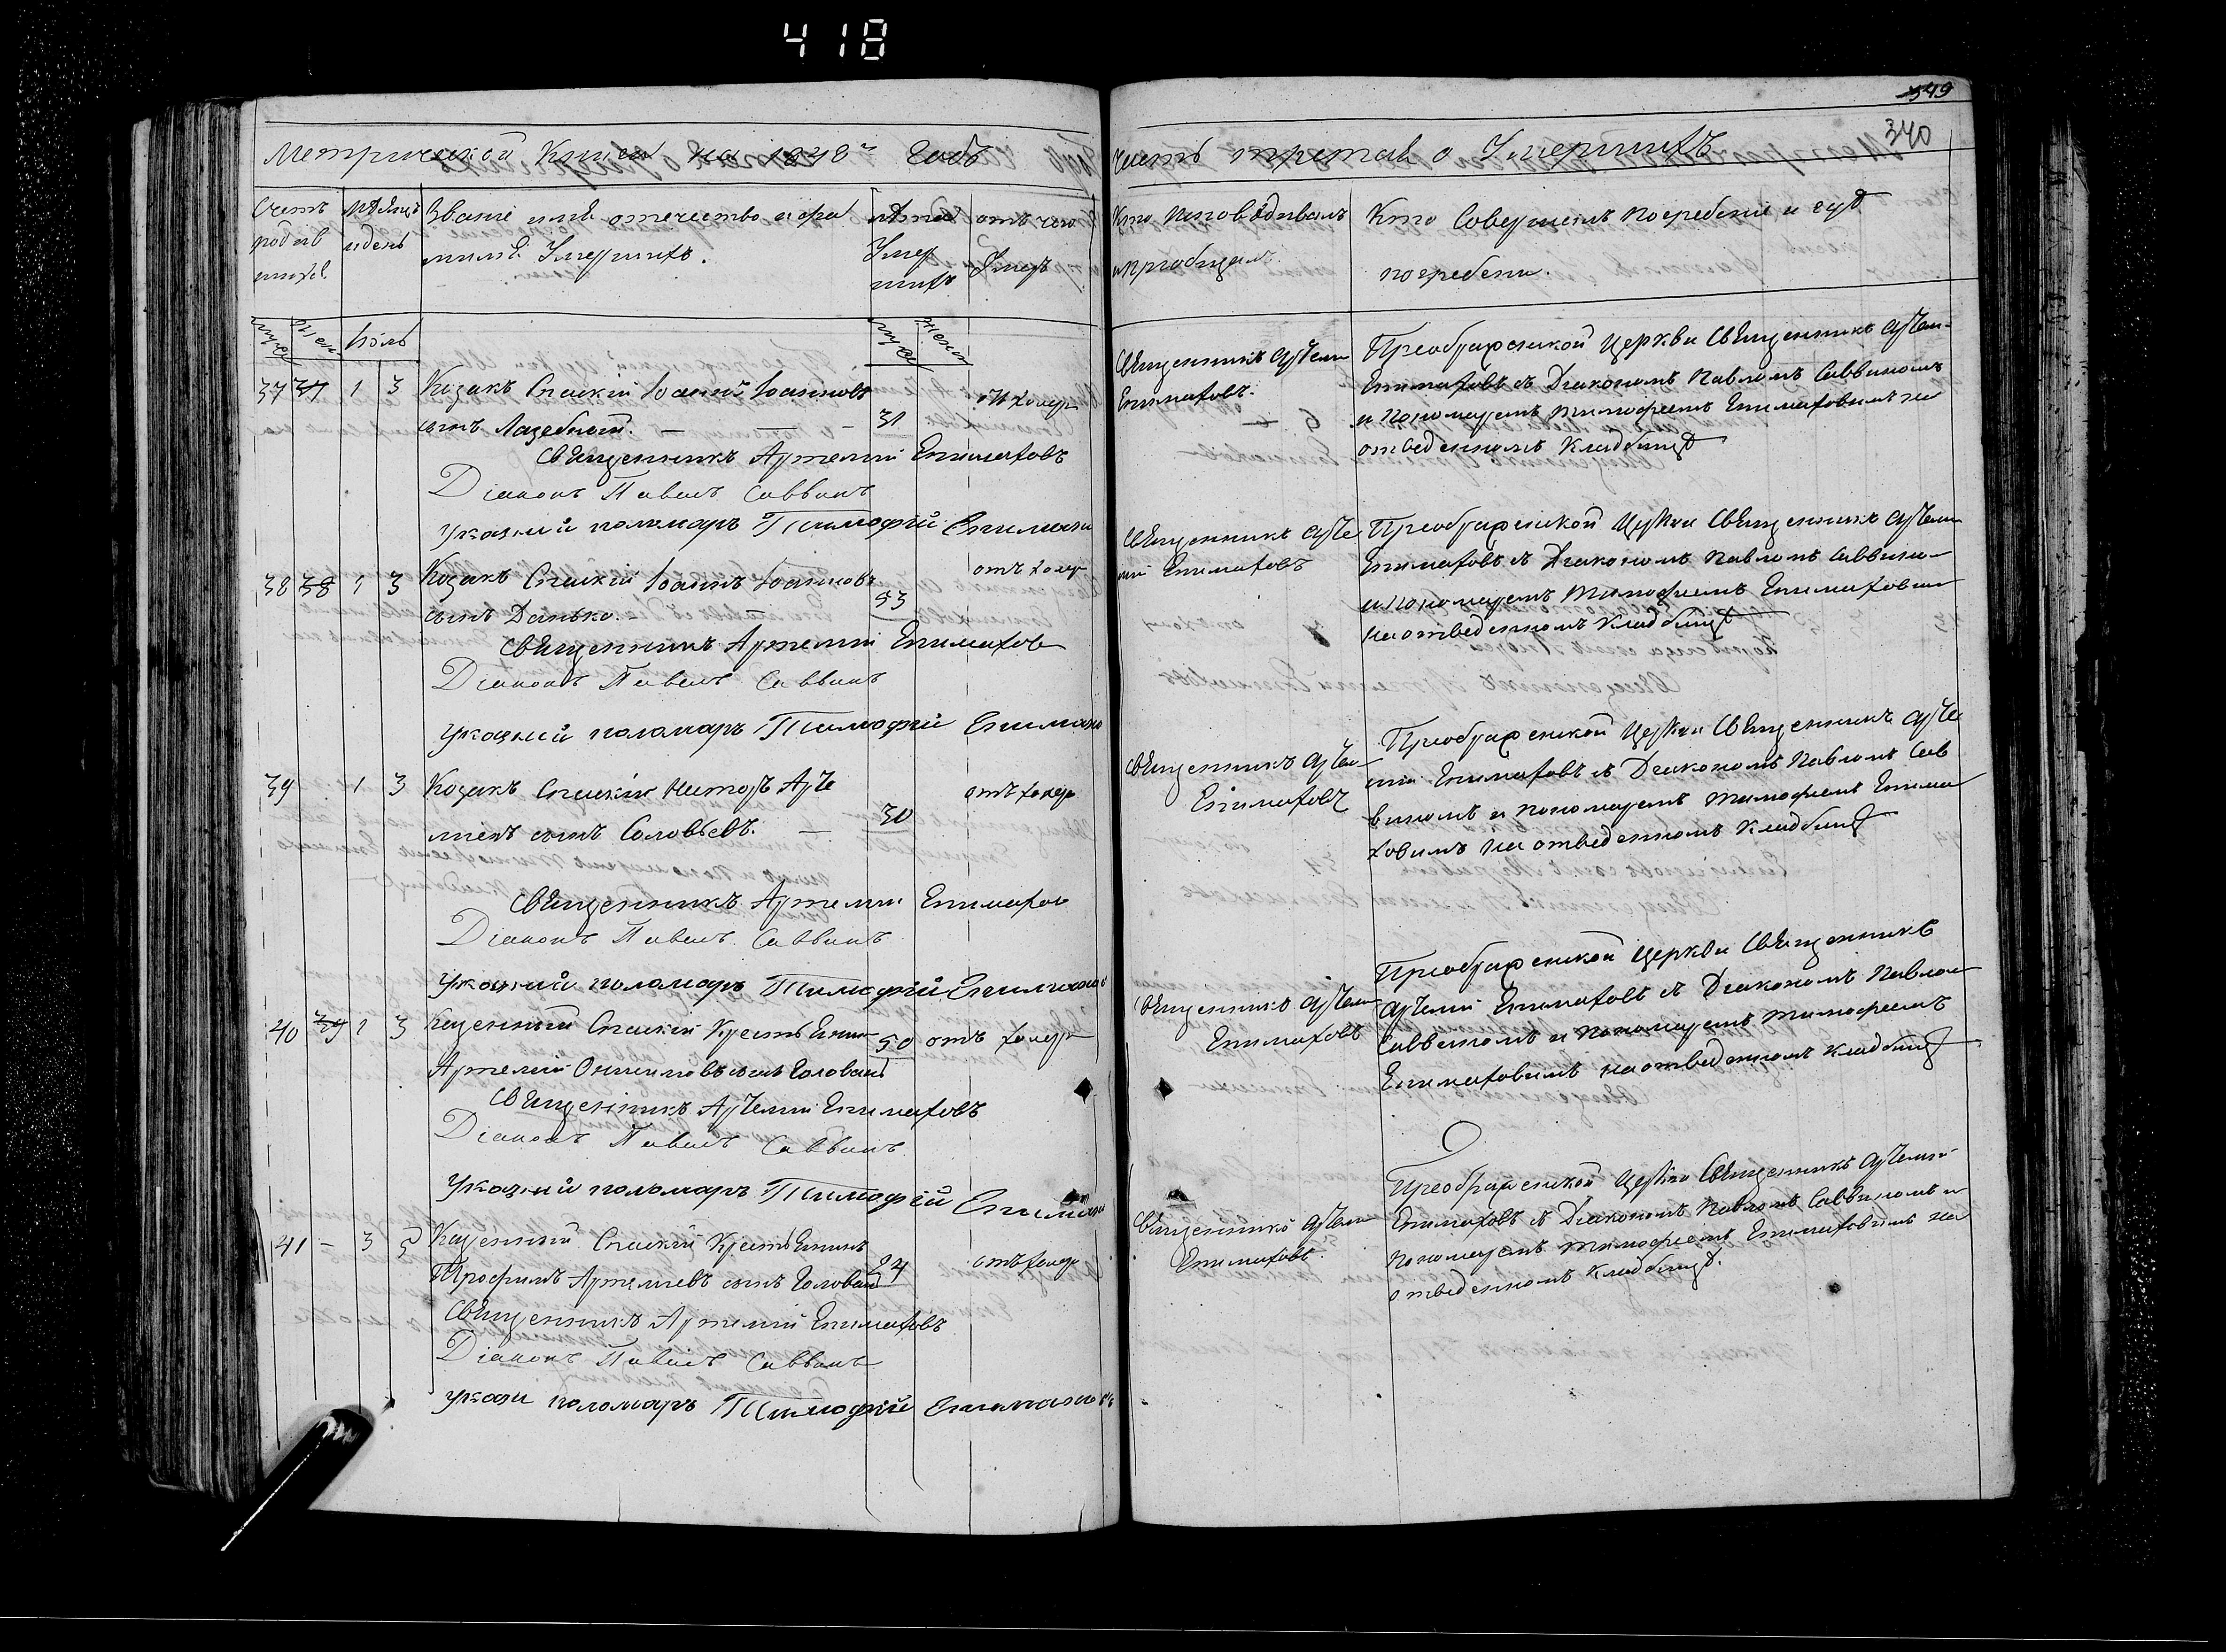 418
549
340
Метрической Книги на 1848й Годъ
часть третая о Умершихъ
Счетъ
умершихъ
Мѣсяцъ
и день
Званіе имя отечество и фа
милія Умершихъ.
лѣта
Умер
шихъ
отъ чего
Умеръ
Кто исповѣдивалъ
и пріобщалъ.
Кто Совершалъ погребеніе и гдѣ
погребени.
муж
жен
Іюль
муж
жен
37 37 1 3 Козакъ Спаскій Іоаннъ Іоанновъ
сынъ Лазебный. — — — 31
отъ холер
Священникъ Артемій Епимаховъ
Діаконъ Павелъ Саввинъ
Указний поломарь Тимофій Епимахо
Священникъ Артеми
Епимаховъ.
Преображенской Церкви Священникъ Артем
Епимаховъ съ Діакономъ Павломъ Саввиномъ
и Пономаремъ Тимофеемъ Епимаховимъ на
отведенномъ Кладбищѣ
38 38 1 3 Козакъ Спаскій Іоаннъ Іоанновъ
сынъ Данько. — 53
отъ холер
Священникъ Артемій Епимахов
Діаконъ Павелъ Саввинъ
Указний поломарь Тимофій Епимахо
Священникъ Арте
мій Епимаховъ
Преображенской Церкви Священникъ Артеми
Епимаховъ съ Діакономъ Павломъ Саввино
и Пономаремъ Тимофеемъ Епимахови
на отведенномъ Кладбищѣ
39 1 3 Козакъ Спаскій Арте
миевъ сынъ Соловьевъ. — 30
отъ холер
Священникъ Артемии Епимахов
Діаконъ Павелъ Саввинъ
Указний поломарь Тимофій Епимахов
Священникъ Артем
Епимаховъ
Преображенской Церкви Священникъ Арте
мій Епимаховъ съ Діакономъ Павломъ Сав
виномъ и Пономаремъ Тимофеемъ Епима
ховимъ на отведенномъ Кладбищѣ
40 39 1 3 Казенный Спаскій Крестьенин
Артемій сынъ Головань
50 отъ холер
Священникъ Артемій Епимаховъ
Діаконъ Павелъ Саввинъ
Указний поломарь Тимофій Епимахо
Священникъ Артеми
Епимаховъ
Преображенской Церкви Священникъ
Артемій Епимаховъ съ Діакономъ Павлом
Саввиномъ и Пономаремъ Тимофеемъ
Епимаховимъ на отведенномъ Кладбищѣ
41 — 3 5 Казенный Спаскій Крестьенинъ
Трофимъ Артемиевъ сынъ Головань
24 отъ холер
Священникъ Артемій Епимаховъ
Діаконъ Павелъ Саввинъ
Указни поломарь Тимофій Епимахов
Священникъ Артеми
Епимаховъ.
Преображенской Церкви Священникъ Артемий
Епимаховъ съ Діакономъ Павломъ Саввиномъ и
Пономаремъ Тимофеемъ Епимаховимъ на
отведенномъ Кладбищѣ.